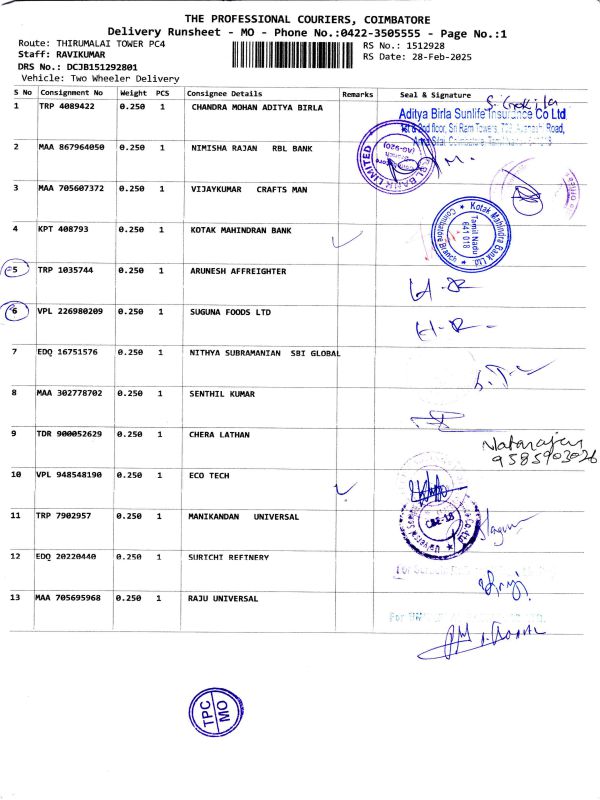 THE PROFESSIONAL COURIERS, COIMBATORE
Delivery Runsheet - MO - Phone No.:0422-3505555 - Page No.:1
Route: THIRUMALAI TOWER PC4 RS No.: 1512928
Staff: RAVIKUMAR RS Date: 28-Feb-2025
DRS No.: DCJB151292801
Vehicle: Two Wheeler Delivery
S No Consignment No Weight PCS Consignee Details Remarks Seal & Signature
1 TRP 4089422 0.250 1 CHANDRA MOHAN ADITYA BIRLA
Aditya Birla Sunlife Insurance Co Ltd
2 MAA 867964050 0.250 1 NIMISHA RAJAN RBL BANK
RBL BANK LIMITED
3 MAA 705607372 0.250 1 VIJAYKUMAR CRAFTS MAN
4 KPT 408793 0.250 1 KOTAK MAHINDRAN BANK
Kotak Mahindra Bank Ltd.
Tamil Nadu
641 018
5 TRP 1035744 0.250 1 ARUNESH AFFREIGHTER
6 VPL 226980209 0.250 1 SUGUNA FOODS LTD
7 EDQ 16751576 0.250 1 NITHYA SUBRAMANIAN SBI GLOBAL
8 MAA 302778702 0.250 1 SENTHIL KUMAR
9 TDR 900052629 0.250 1 CHERA LATHAN
Natarajan
9585903026
10 VPL 948548190 0.250 1 ECO TECH
11 TRP 7902957 0.250 1 MANIKANDAN UNIVERSAL
CBE-18
12 EDQ 20220440 0.250 1 SURICHI REFINERY
13 MAA 705695968 0.250 1 RAJU UNIVERSAL
TPC
MO